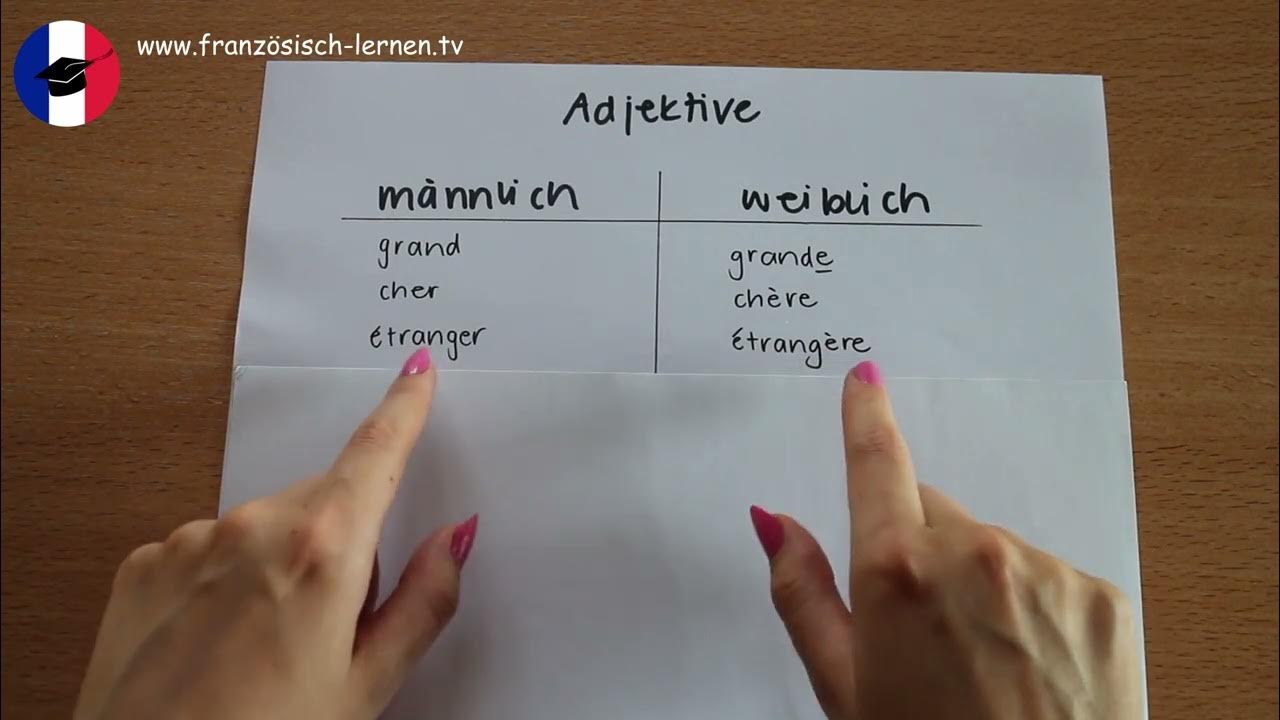 www.französisch-lernen.tv
Adjektive
männlich weiblich
grand grande
cher chère
étranger étrangère